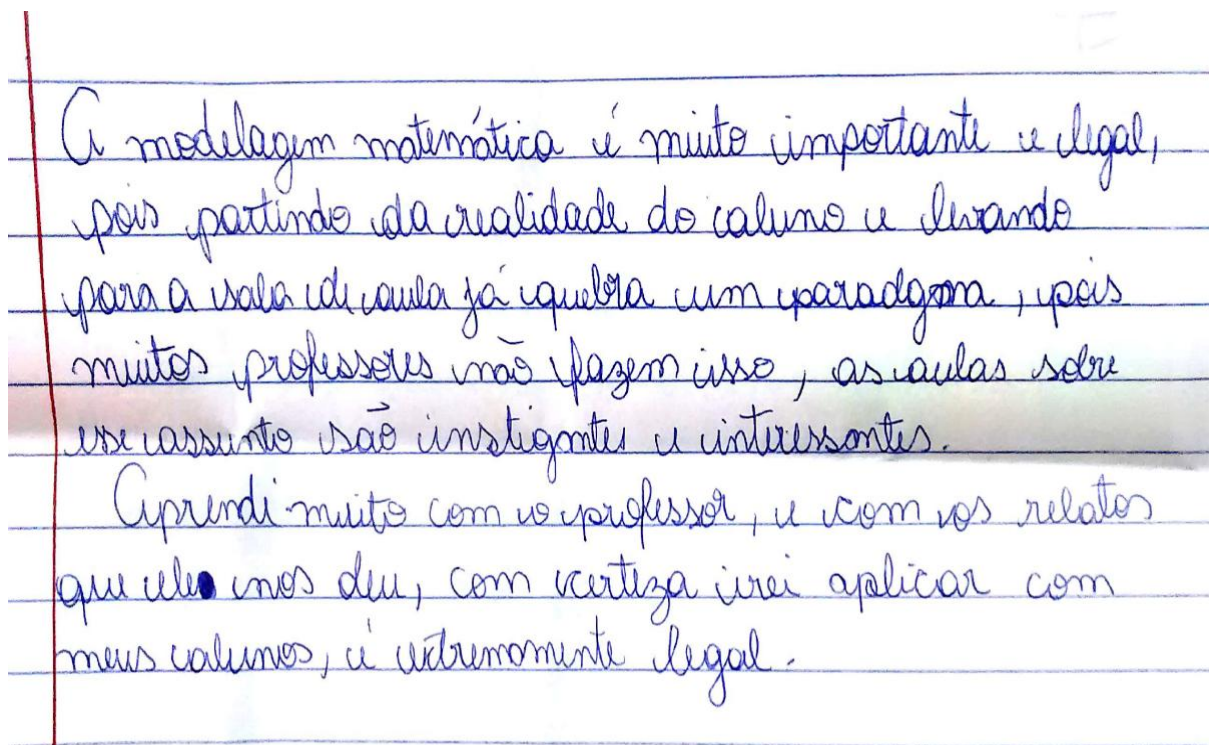 A modelagem matemática é muito importante e legal,
pois partindo da realidade do aluno e levando
para a sala de aula já quebra um paradgma, pois
muitos professores não fazem isso, as aulas sobre
esse assunto são instigantes e interessantes.
Aprendi muito com o professor, e com os relatos
que ele nos deu, com certeza irei aplicar com
meus alunos, é extremamente legal.